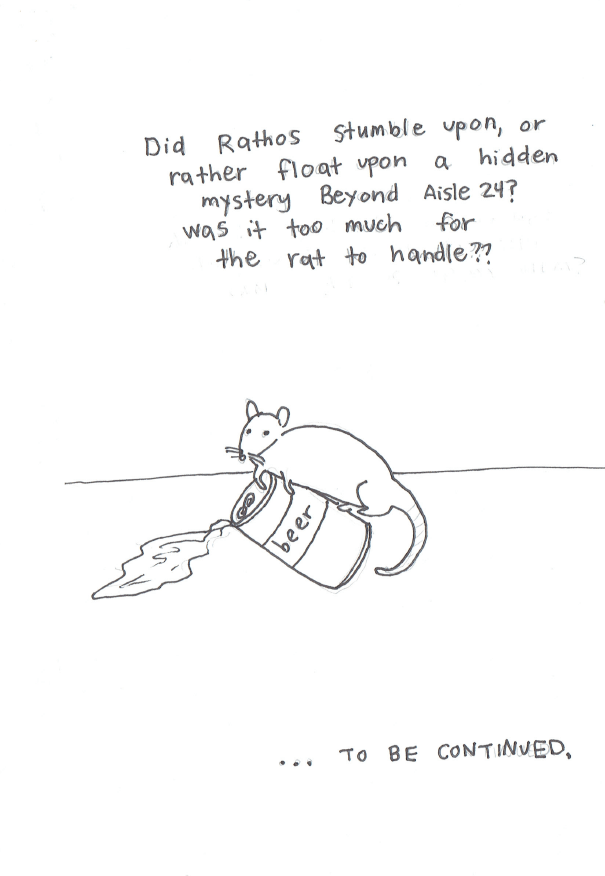 Did Rathos stumble upon, or
rather float upon a hidden
mystery Beyond Aisle 24?
was it too much for
the rat to handle??
beer
... TO BE CONTINUED.